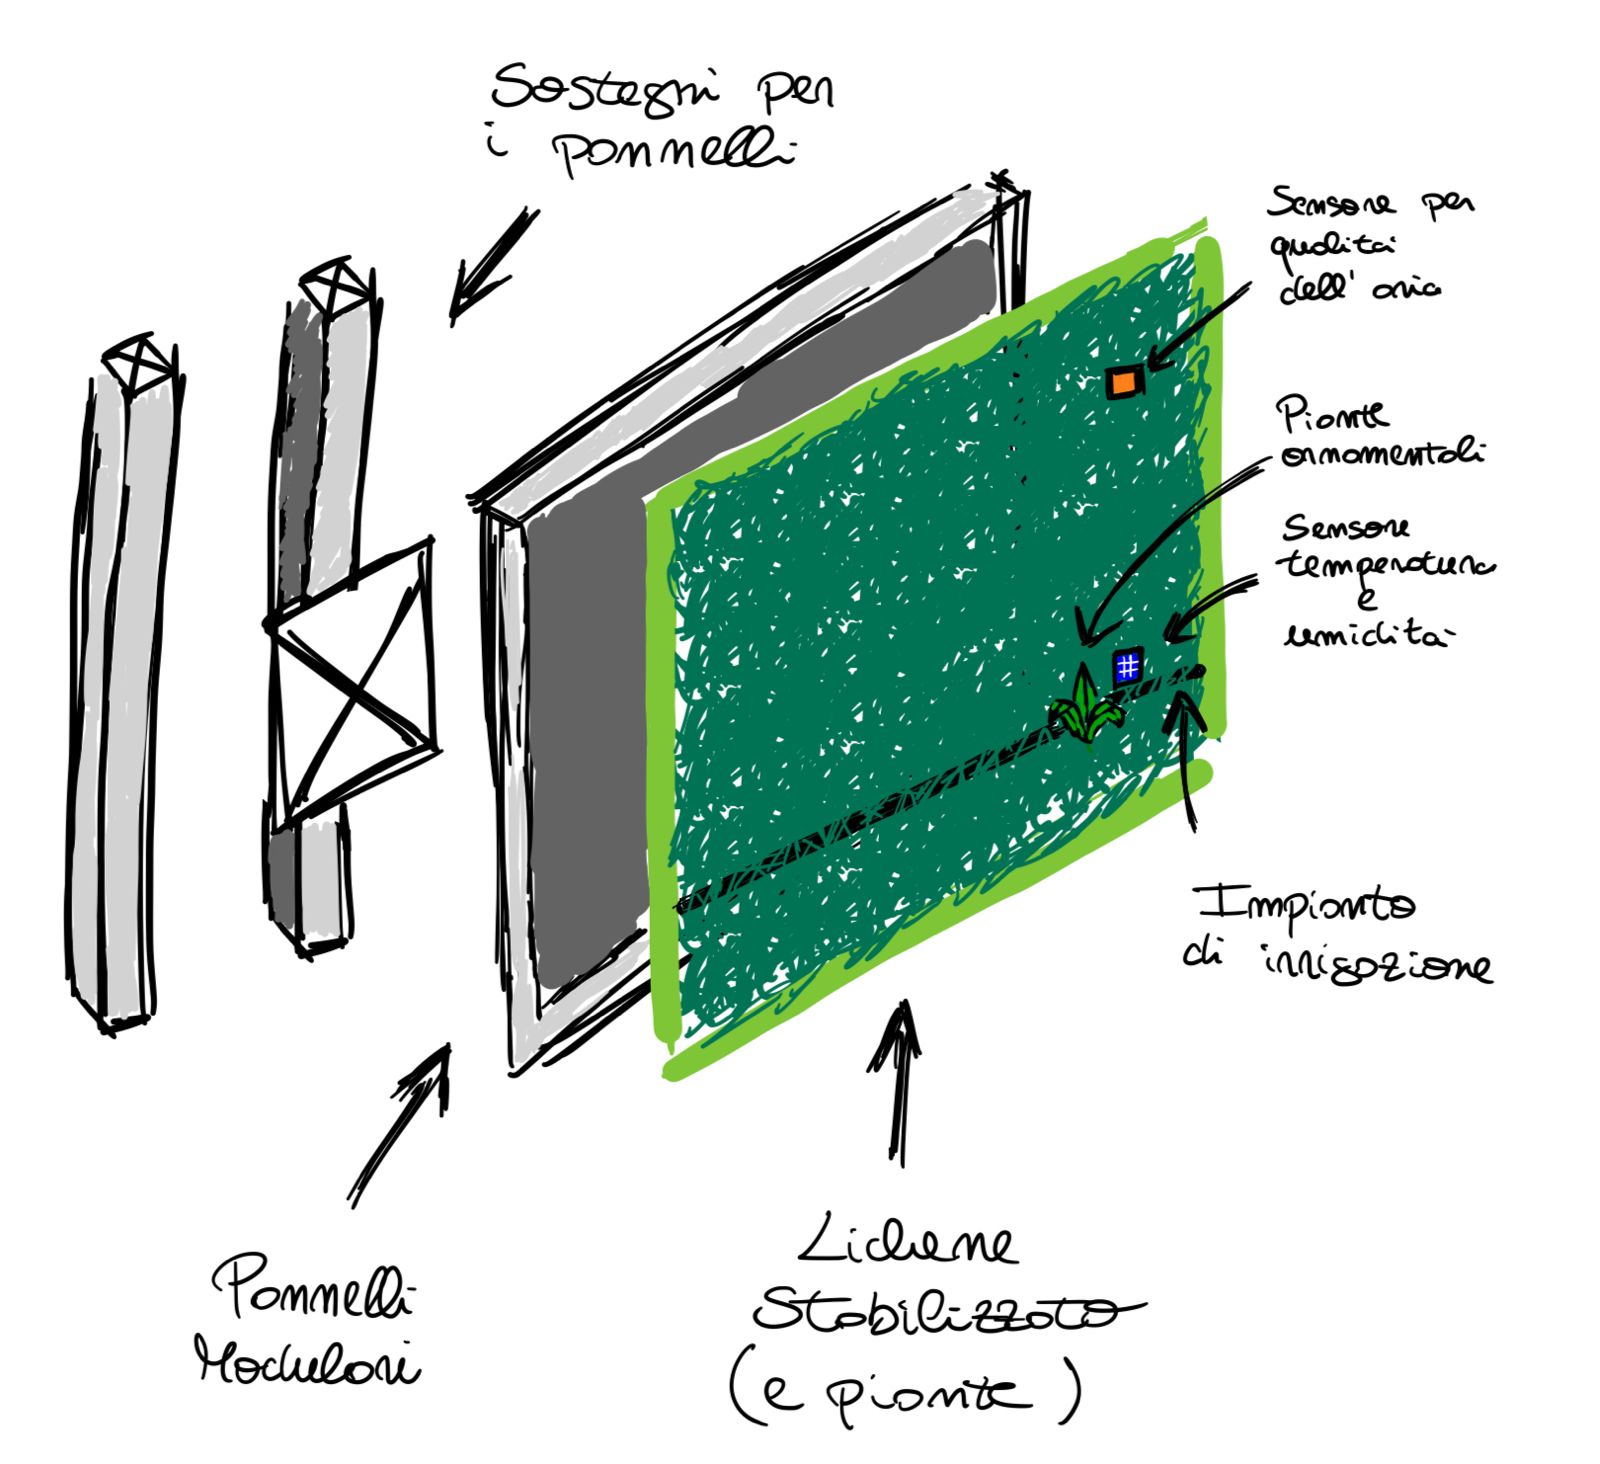 Sostegni per
i pannelli
Sensore per
qualità
dell'aria
Piante
ornamentali
Sensore
temperatura
e
umidità
Impianto
di irrigazione
Pannelli
Modulari
Lichene
Stabilizzato
(e piante)